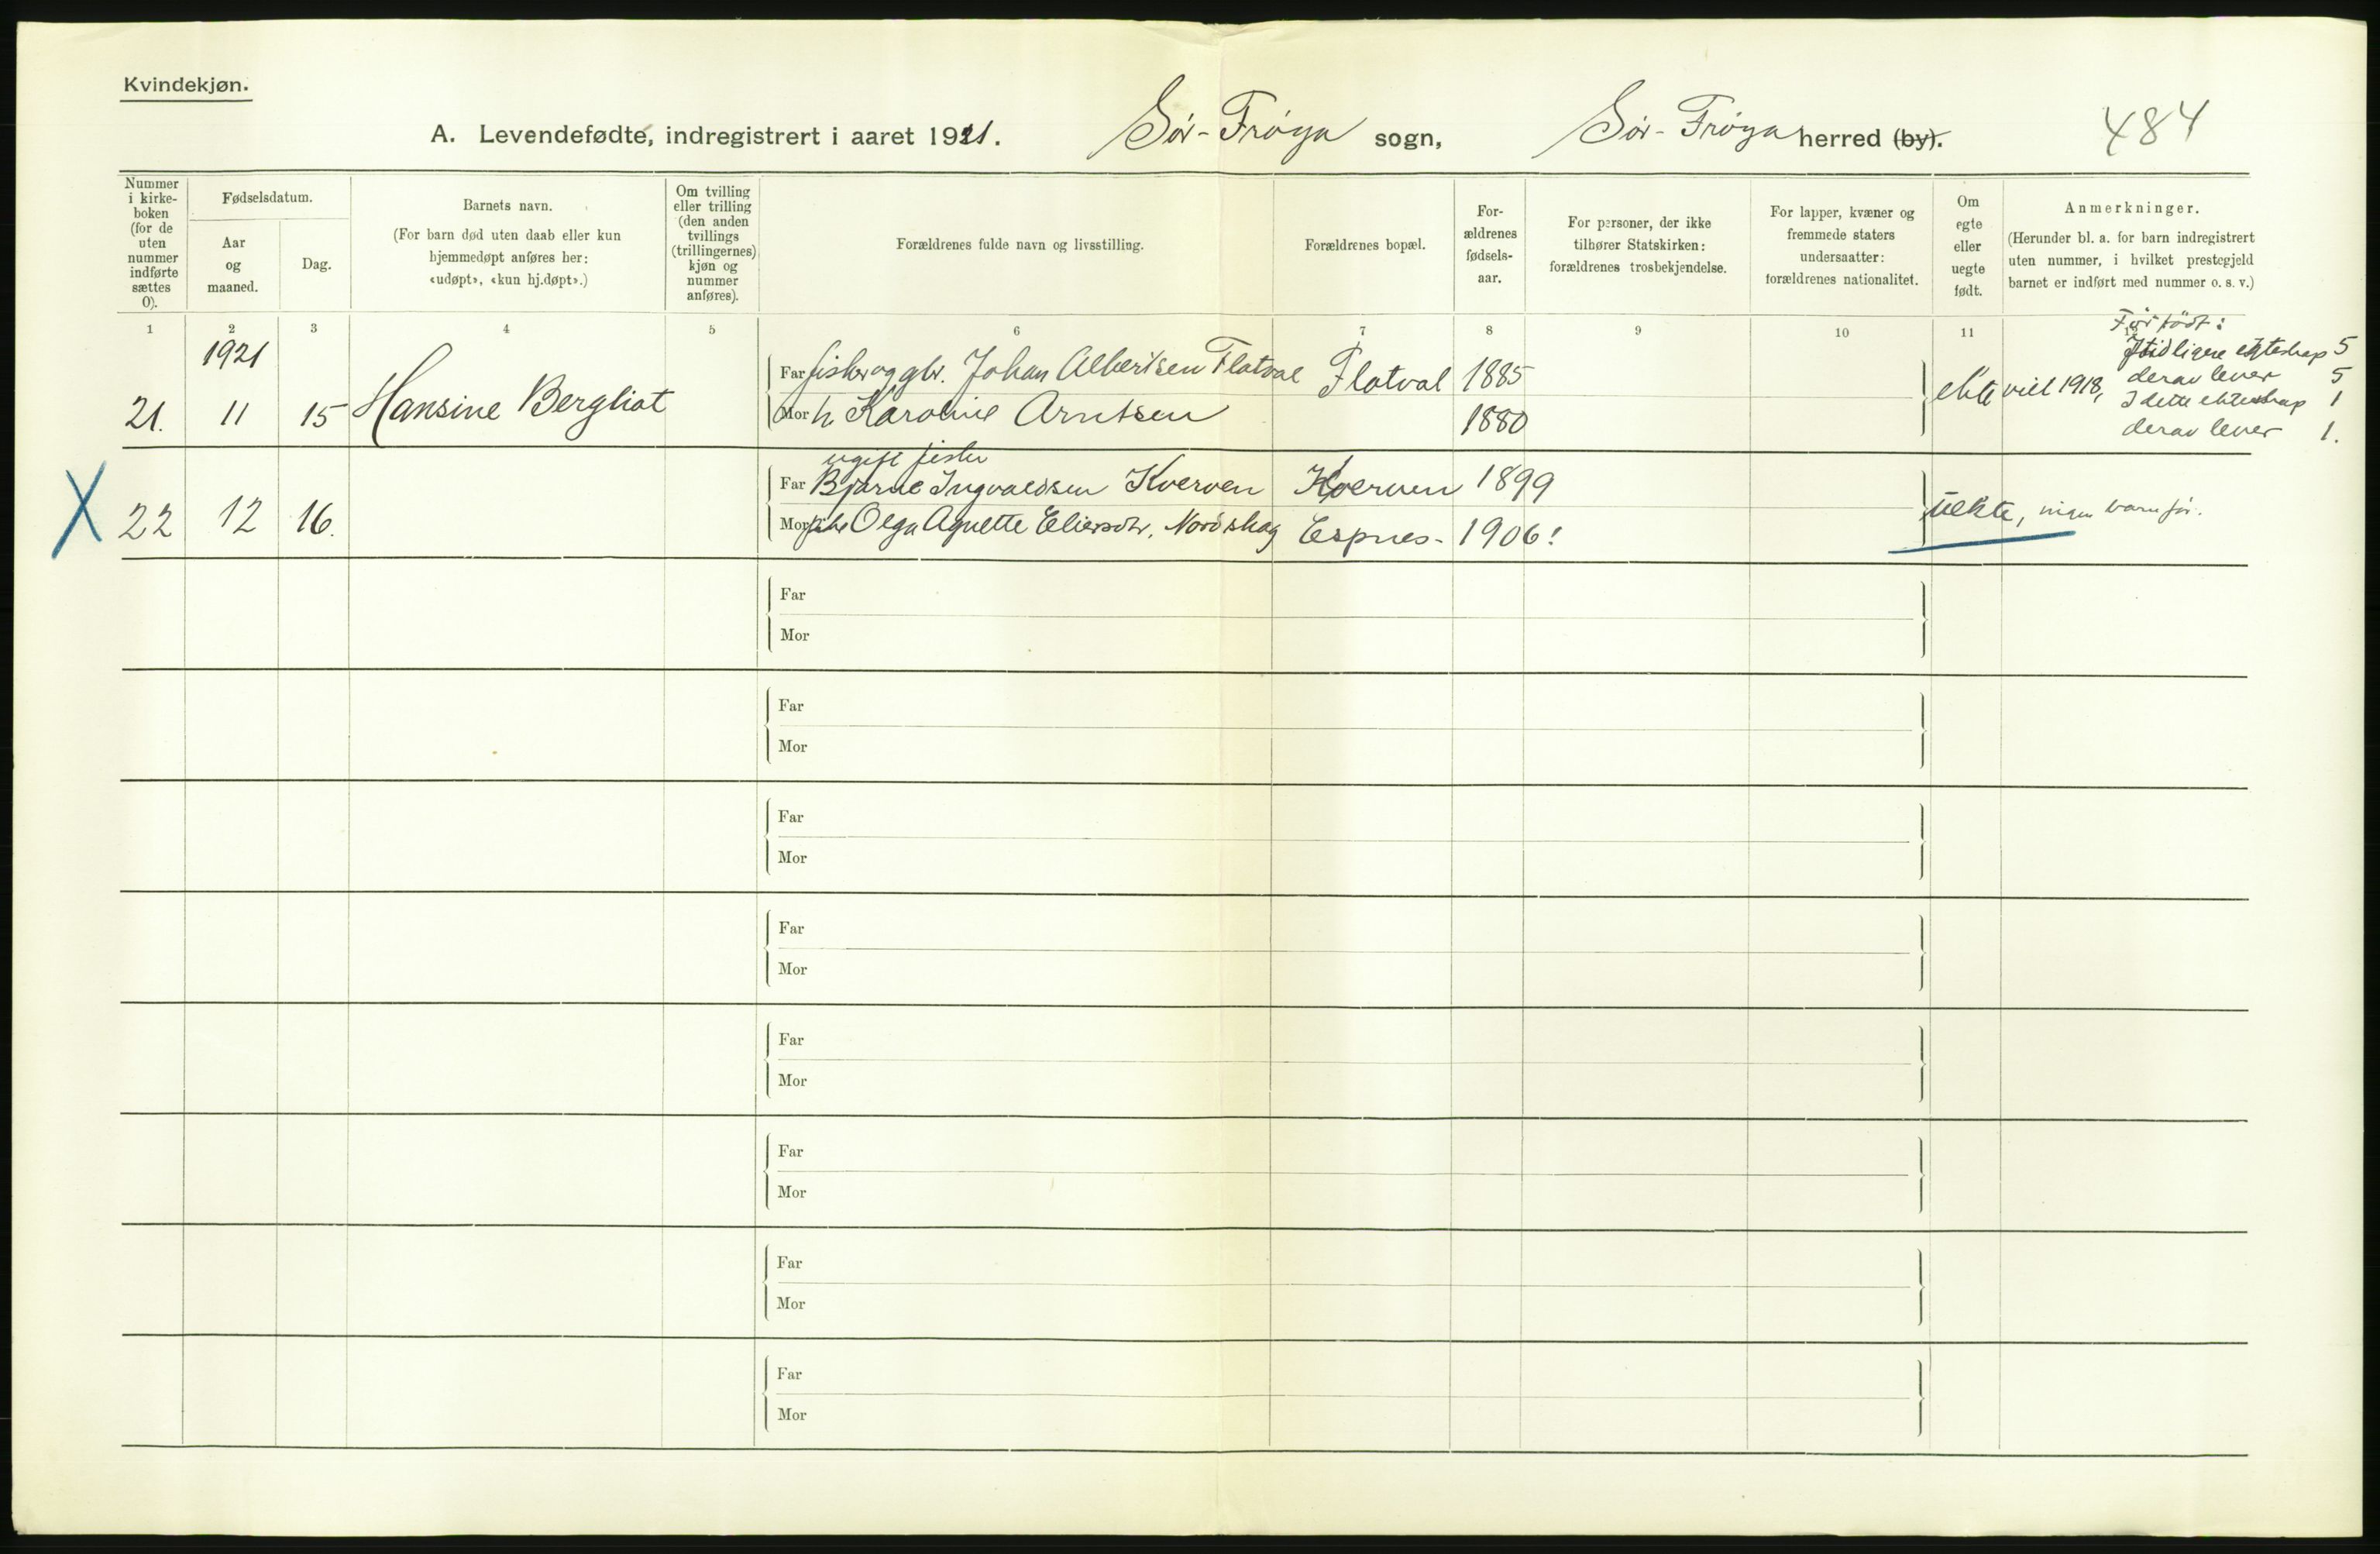 Kvindekjøn.
A. Levendefødte, indregistrert i aaret 1921. Sör-Fröya sogn, Sör-Fröya herred (by). 484
Nummer i kirke-boken (for de uten nummer indførte sættes 0).
Fødselsdatum.
Aar og maaned.
Dag.
Barnets navn.
(For barn død uten daab eller kun hjemmedøpt anføres her: «udøpt», «kun hj.døpt».)
Om tvilling eller trilling (den anden tvillings (trillingernes) kjøn og nummer anføres).
Forældrenes fulde navn og livsstilling.
Forældrenes bopæl.
For-ældrenes fødsels-aar.
For personer, der ikke tilhører Statskirken: forældrenes trosbekjendelse.
For lapper, kvæner og fremmede staters undersaatter: forældrenes nationalitet.
Om egte eller uegte født.
Anmerkninger.
(Herunder bl. a. for barn indregistrert uten nummer, i hvilket prestegjeld barnet er indført med nummer o. s. v.)
1 2 3 4 5 6 7 8 9 10 11 12
1921
21. 11 15 Hansine Bergliot
Far fisker og gbr. Johan Albertsen Flatval Flatval 1885
Mor h. Karoline Arntsen 1880
ekte viet 1918,
Før född:
I tidligere ekteskap 5
derav lever 5
I dette ekteskap 1
derav lever 1.
X 22 12 16.
ugift fisker
Far Bjarne Ingvaldsen Kverven Kverven 1899
Mor pike Olga Agnette Eliersdtr. Nordskag Espnes - 1906!
uekte, ingen barn før.
Far
Mor
Far
Mor
Far
Mor
Far
Mor
Far
Mor
Far
Mor
Far
Mor
Far
Mor